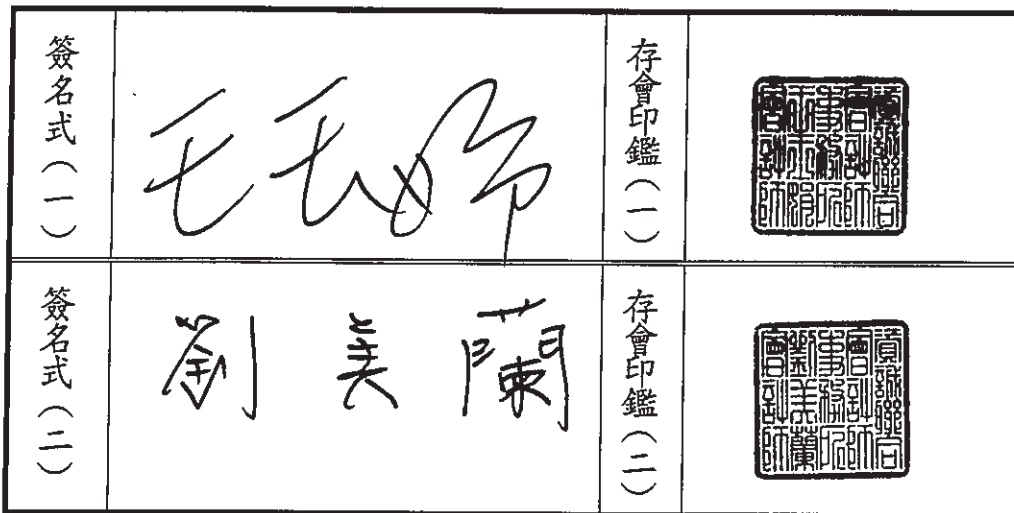 簽名式(一)
存會印鑑(一)
資誠聯合
會計師
事務所
會計師
簽名式(二)
劉美蘭
存會印鑑(二)
資誠聯合
會計師
事務所
劉美蘭
會計師